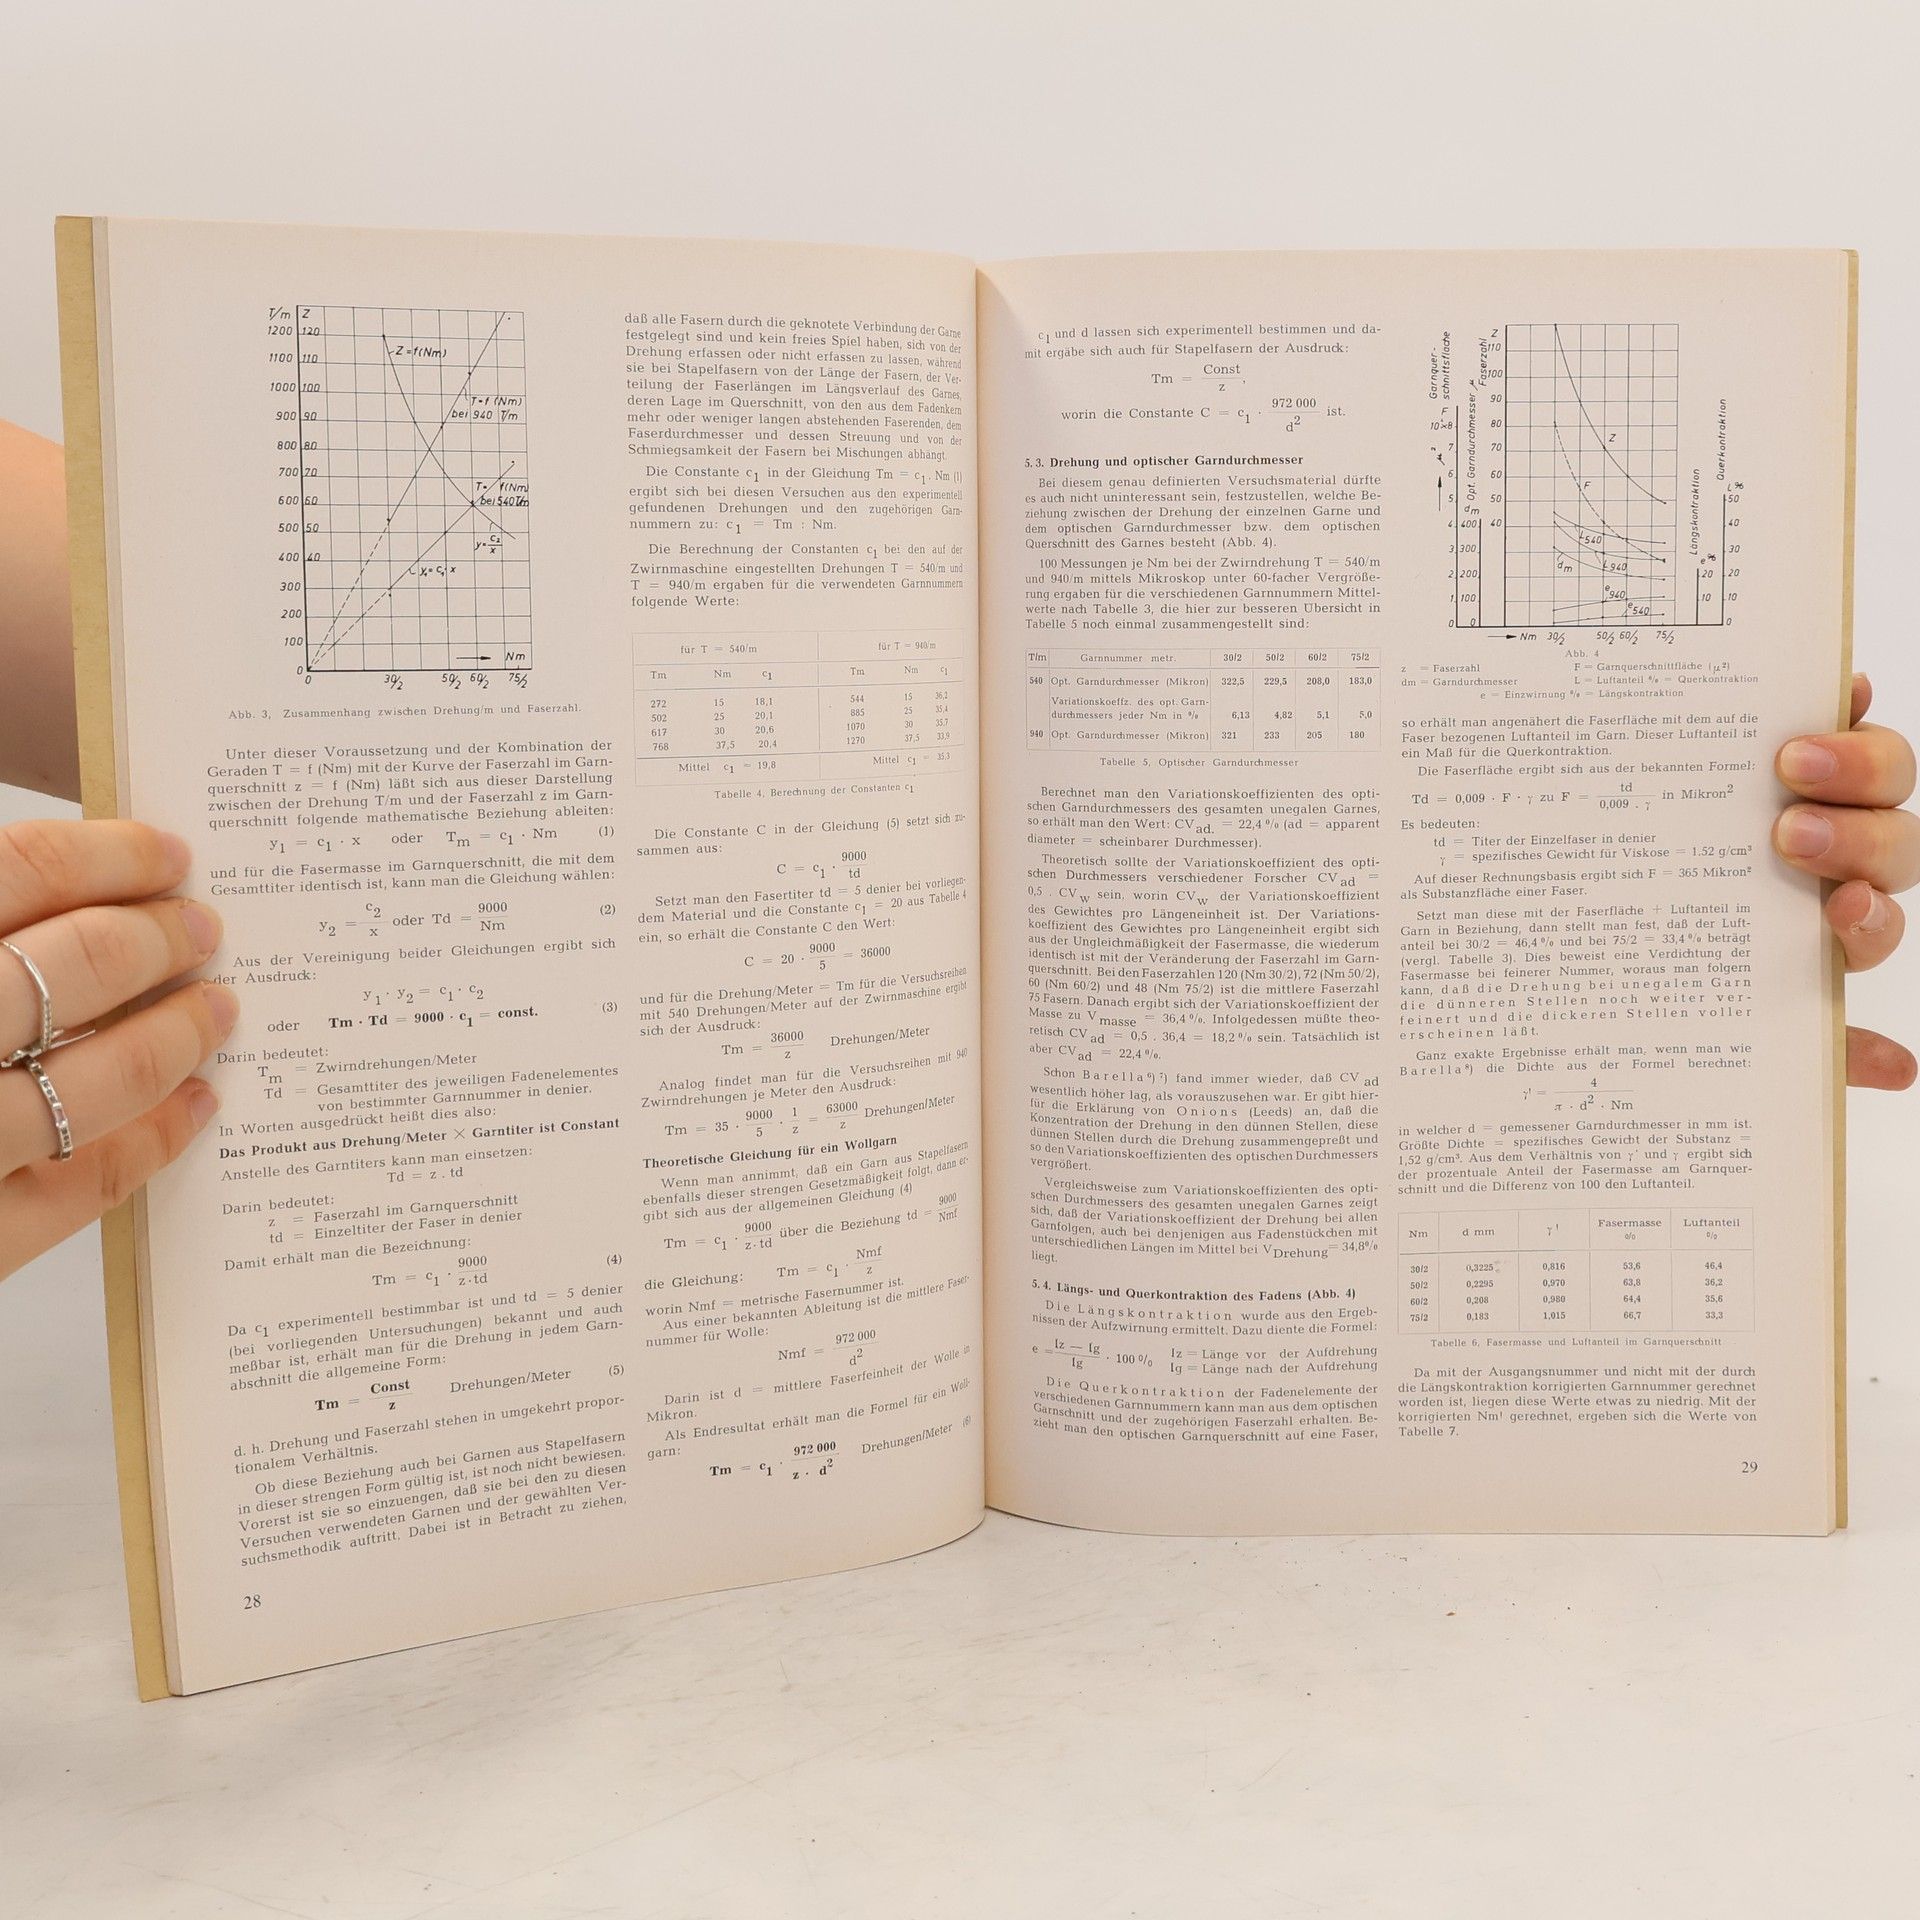 T/m Z
1200 120
1100 110
1000 100
900 90
800 80
700 70
600 60
500 50
400 40
300
200
100
0
Z=f(Nm)
T=f(Nm)
bei 940 T/m
T= f(Nm)
bei 540 T/m
y=c2/x
y1=c1·x
Nm
0 30/2 50/2 60/2 75/2
Abb. 3, Zusammenhang zwischen Drehung/m und Faserzahl.
Unter dieser Voraussetzung und der Kombination der
Geraden T = f (Nm) mit der Kurve der Faserzahl im Garn-
querschnitt z = f (Nm) läßt sich aus dieser Darstellung
zwischen der Drehung T/m und der Faserzahl z im Garn-
querschnitt folgende mathematische Beziehung ableiten:
y1 = c1 · x oder Tm = c1 · Nm (1)
und für die Fasermasse im Garnquerschnitt, die mit dem
Gesamttiter identisch ist, kann man die Gleichung wählen:
y2 = c2/x oder Td = 9000/Nm (2)
Aus der Vereinigung beider Gleichungen ergibt sich
der Ausdruck:
y1 · y2 = c1 · c2
oder Tm · Td = 9000 · c1 = const. (3)
Darin bedeutet:
Tm = Zwirndrehungen/Meter
Td = Gesamttiter des jeweiligen Fadenelementes
von bestimmter Garnnummer in denier.
In Worten ausgedrückt heißt dies also:
Das Produkt aus Drehung/Meter × Garntiter ist Constant
Anstelle des Garntiters kann man einsetzen:
Td = z . td
Darin bedeutet:
z = Faserzahl im Garnquerschnitt
td = Einzeltiter der Faser in denier
Damit erhält man die Bezeichnung:
Tm = c1 · 9000/z·td (4)
Da c1 experimentell bestimmbar ist und td = 5 denier
(bei vorliegenden Untersuchungen) bekannt und auch
meßbar ist, erhält man für die Drehung in jedem Garn-
abschnitt die allgemeine Form:
Tm = Const/z Drehungen/Meter (5)
d. h. Drehung und Faserzahl stehen in umgekehrt propor-
tionalem Verhältnis.
Ob diese Beziehung auch bei Garnen aus Stapelfasern
in dieser strengen Form gültig ist, ist noch nicht bewiesen.
Vorerst ist sie so einzuengen, daß sie bei den zu diesen
Versuchen verwendeten Garnen und der gewählten Ver-
suchsmethodik auftritt. Dabei ist in Betracht zu ziehen,
28
daß alle Fasern durch die geknotete Verbindung der Garne
festgelegt sind und kein freies Spiel haben, sich von der
Drehung erfassen oder nicht erfassen zu lassen, während
sie bei Stapelfasern von der Länge der Fasern, der Ver-
teilung der Faserlängen im Längsverlauf des Garnes,
deren Lage im Querschnitt, von den aus dem Fadenkern
mehr oder weniger langen abstehenden Faserenden, dem
Faserdurchmesser und dessen Streuung und von der
Schmiegsamkeit der Fasern bei Mischungen abhängt.
Die Constante c1 in der Gleichung Tm = c1 . Nm (1)
ergibt sich bei diesen Versuchen aus den experimentell
gefundenen Drehungen und den zugehörigen Garn-
nummern zu: c1 = Tm : Nm.
Die Berechnung der Constanten c1 bei den auf der
Zwirnmaschine eingestellten Drehungen T = 540/m und
T = 940/m ergaben für die verwendeten Garnnummern
folgende Werte:
für T = 540/m für T = 940/m
Tm Nm c1 Tm Nm c1
272 15 18,1 544 15 36,2
502 25 20,1 885 25 35,4
617 30 20,6 1070 30 35,7
768 37,5 20,4 1270 37,5 33,9
Mittel c1 = 19,8 Mittel c1 = 35,3
Tabelle 4, Berechnung der Constanten c1
Die Constante C in der Gleichung (5) setzt sich zu-
sammen aus:
C = c1 · 9000/td
Setzt man den Fasertiter td = 5 denier bei vorliegen-
dem Material und die Constante c1 = 20 aus Tabelle 4
ein, so erhält die Constante C den Wert:
C = 20 · 9000/5 = 36000
und für die Drehung/Meter = Tm für die Versuchsreihen
mit 540 Drehungen/Meter auf der Zwirnmaschine ergibt
sich der Ausdruck:
Tm = 36000/z Drehungen/Meter
Analog findet man für die Versuchsreihen mit 940
Zwirndrehungen je Meter den Ausdruck:
Tm = 35 · 9000/5 · 1/z = 63000/z Drehungen/Meter
Theoretische Gleichung für ein Wollgarn
Wenn man annimmt, daß ein Garn aus Stapelfasern
ebenfalls dieser strengen Gesetzmäßigkeit folgt, dann er-
gibt sich aus der allgemeinen Gleichung (4)
Tm = c1 · 9000/z·td über die Beziehung td = 9000/Nmf
die Gleichung: Tm = c1 · Nmf/z
worin Nmf = metrische Fasernummer ist.
Aus einer bekannten Ableitung ist die mittlere Faser-
nummer für Wolle:
Nmf = 972 000/d²
Darin ist d = mittlere Faserfeinheit der Wolle in
Mikron.
Als Endresultat erhält man die Formel für ein Woll-
garn:
Tm = c1 · 972 000/z . d² Drehungen/Meter (6)
c1 und d lassen sich experimentell bestimmen und da-
mit ergäbe sich auch für Stapelfasern der Ausdruck:
Tm = Const/z,
worin die Constante C = c1 · 972 000/d² ist.
5.3. Drehung und optischer Garndurchmesser
Bei diesem genau definierten Versuchsmaterial dürfte
es auch nicht uninteressant sein, festzustellen, welche Be-
ziehung zwischen der Drehung der einzelnen Garne und
dem optischen Garndurchmesser bzw. dem optischen
Querschnitt des Garnes besteht (Abb. 4).
100 Messungen je Nm bei der Zwirndrehung T = 540/m
und 940/m mittels Mikroskop unter 60-facher Vergröße-
rung ergaben für die verschiedenen Garnnummern Mittel-
werte nach Tabelle 3, die hier zur besseren Übersicht in
Tabelle 5 noch einmal zusammengestellt sind:
T/m Garnnummer metr. 30/2 50/2 60/2 75/2
540 Opt. Garndurchmesser (Mikron) 322,5 229,5 208,0 183,0
Variationskoeffz. des opt. Garn-
durchmessers jeder Nm in % 6,13 4,82 5,1 5,0
940 Opt. Garndurchmesser (Mikron) 321 233 205 180
Tabelle 5, Optischer Garndurchmesser
Berechnet man den Variationskoeffizienten des opti-
schen Garndurchmessers des gesamten unegalen Garnes,
so erhält man den Wert: CVad. = 22,4 % (ad = apparent
diameter = scheinbarer Durchmesser).
Theoretisch sollte der Variationskoeffizient des opti-
schen Durchmessers verschiedener Forscher CVad =
0,5 . CVw sein, worin CVw der Variationskoeffizient
des Gewichtes pro Längeneinheit ist. Der Variations-
koeffizient des Gewichtes pro Längeneinheit ergibt sich
aus der Ungleichmäßigkeit der Fasermasse, die wiederum
identisch ist mit der Veränderung der Faserzahl im Garn-
querschnitt. Bei den Faserzahlen 120 (Nm 30/2), 72 (Nm 50/2),
60 (Nm 60/2) und 48 (Nm 75/2) ist die mittlere Faserzahl
75 Fasern. Danach ergibt sich der Variationskoeffizient der
Masse zu Vmasse = 36,4 %. Infolgedessen müßte theo-
retisch CVad = 0,5 . 36,4 = 18,2 % sein. Tatsächlich ist
aber CVad = 22,4 %.
Schon Barella⁶) ⁷) fand immer wieder, daß CVad
wesentlich höher lag, als vorauszusehen war. Er gibt hier-
für die Erklärung von Onions (Leeds) an, daß die
Konzentration der Drehung in den dünnen Stellen, diese
dünnen Stellen durch die Drehung zusammengepreßt und
so den Variationskoeffizienten des optischen Durchmessers
vergrößert.
Vergleichsweise zum Variationskoeffizienten des opti-
schen Durchmessers des gesamten unegalen Garnes zeigt
sich, daß der Variationskoeffizient der Drehung bei allen
Garnfolgen, auch bei denjenigen aus Fadenstückchen mit
unterschiedlichen Längen im Mittel bei VDrehung = 34,8%
liegt.
5.4. Längs- und Querkontraktion des Fadens (Abb. 4)
Die Längskontraktion wurde aus den Ergeb-
nissen der Aufzwirnung ermittelt. Dazu diente die Formel:
e = lz — lg/lg · 100 % lz = Länge vor der Aufdrehung
lg = Länge nach der Aufdrehung
Die Querkontraktion der Fadenelemente der
verschiedenen Garnnummern kann man aus dem optischen
Garnschnitt und der zugehörigen Faserzahl erhalten. Be-
zieht man den optischen Garnquerschnitt auf eine Faser,
Garnquer-
schnittsfläche
Opt. Garndurchmesser µ
Faserzahl
Längskontraktion
Querkontraktion
Z
110
100
90
80
70
60
50
40
F
10³×8
7
6
5
4
3
2
1
0
dm
400
300
200
100
0
Z
F
L540
L940
dm
e940
e540
e%
20
10
L%
50
40
30
20
10
0
Nm 30/2 50/2 60/2 75/2
Abb. 4
z = Faserzahl F = Garnquerschnittfläche (µ²)
dm = Garndurchmesser L = Luftanteil % = Querkontraktion
e = Einzwirnung % = Längskontraktion
so erhält man angenähert die Faserfläche mit dem auf die
Faser bezogenen Luftanteil im Garn. Dieser Luftanteil ist
ein Maß für die Querkontraktion.
Die Faserfläche ergibt sich aus der bekannten Formel:
Td = 0,009 · F · γ zu F = td/0,009 . γ in Mikron²
Es bedeuten:
td = Titer der Einzelfaser in denier
γ = spezifisches Gewicht für Viskose = 1.52 g/cm³
Auf dieser Rechnungsbasis ergibt sich F = 365 Mikron²
als Substanzfläche einer Faser.
Setzt man diese mit der Faserfläche + Luftanteil im
Garn in Beziehung, dann stellt man fest, daß der Luft-
anteil bei 30/2 = 46,4 % und bei 75/2 = 33,4 % beträgt
(vergl. Tabelle 3). Dies beweist eine Verdichtung der
Fasermasse bei feinerer Nummer, woraus man folgern
kann, daß die Drehung bei unegalem Garn
die dünneren Stellen noch weiter ver-
feinert und die dickeren Stellen voller
erscheinen läßt.
Ganz exakte Ergebnisse erhält man, wenn man wie
Barella⁸) die Dichte aus der Formel berechnet:
γ' = 4/π . d² . Nm
in welcher d = gemessener Garndurchmesser in mm ist.
Größte Dichte = spezifisches Gewicht der Substanz =
1,52 g/cm³. Aus dem Verhältnis von γ' und γ ergibt sich
der prozentuale Anteil der Fasermasse am Garnquer-
schnitt und die Differenz von 100 den Luftanteil.
Nm d mm γ' Fasermasse % Luftanteil %
30/2 0,3225 0,816 53,6 46,4
50/2 0,2295 0,970 63,8 36,2
60/2 0,208 0,980 64,4 35,6
75/2 0,183 1,015 66,7 33,3
Tabelle 6, Fasermasse und Luftanteil im Garnquerschnitt
Da mit der Ausgangsnummer und nicht mit der durch
die Längskontraktion korrigierten Garnnummer gerechnet
worden ist, liegen diese Werte etwas zu niedrig. Mit der
korrigierten Nm' gerechnet, ergeben sich die Werte von
Tabelle 7.
29